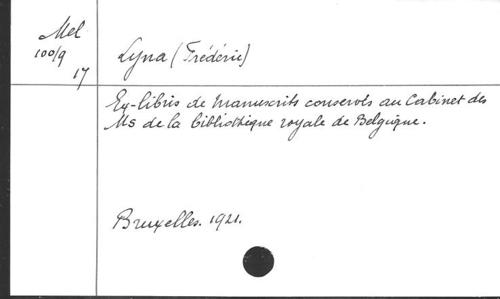 Mel
100/9
17
Lyna (Frédéric)
Ex-libris de manuscrits conservés au Cabinet des
Ms de la bibliothèque royale de Belgique.
Bruxelles. 1921.